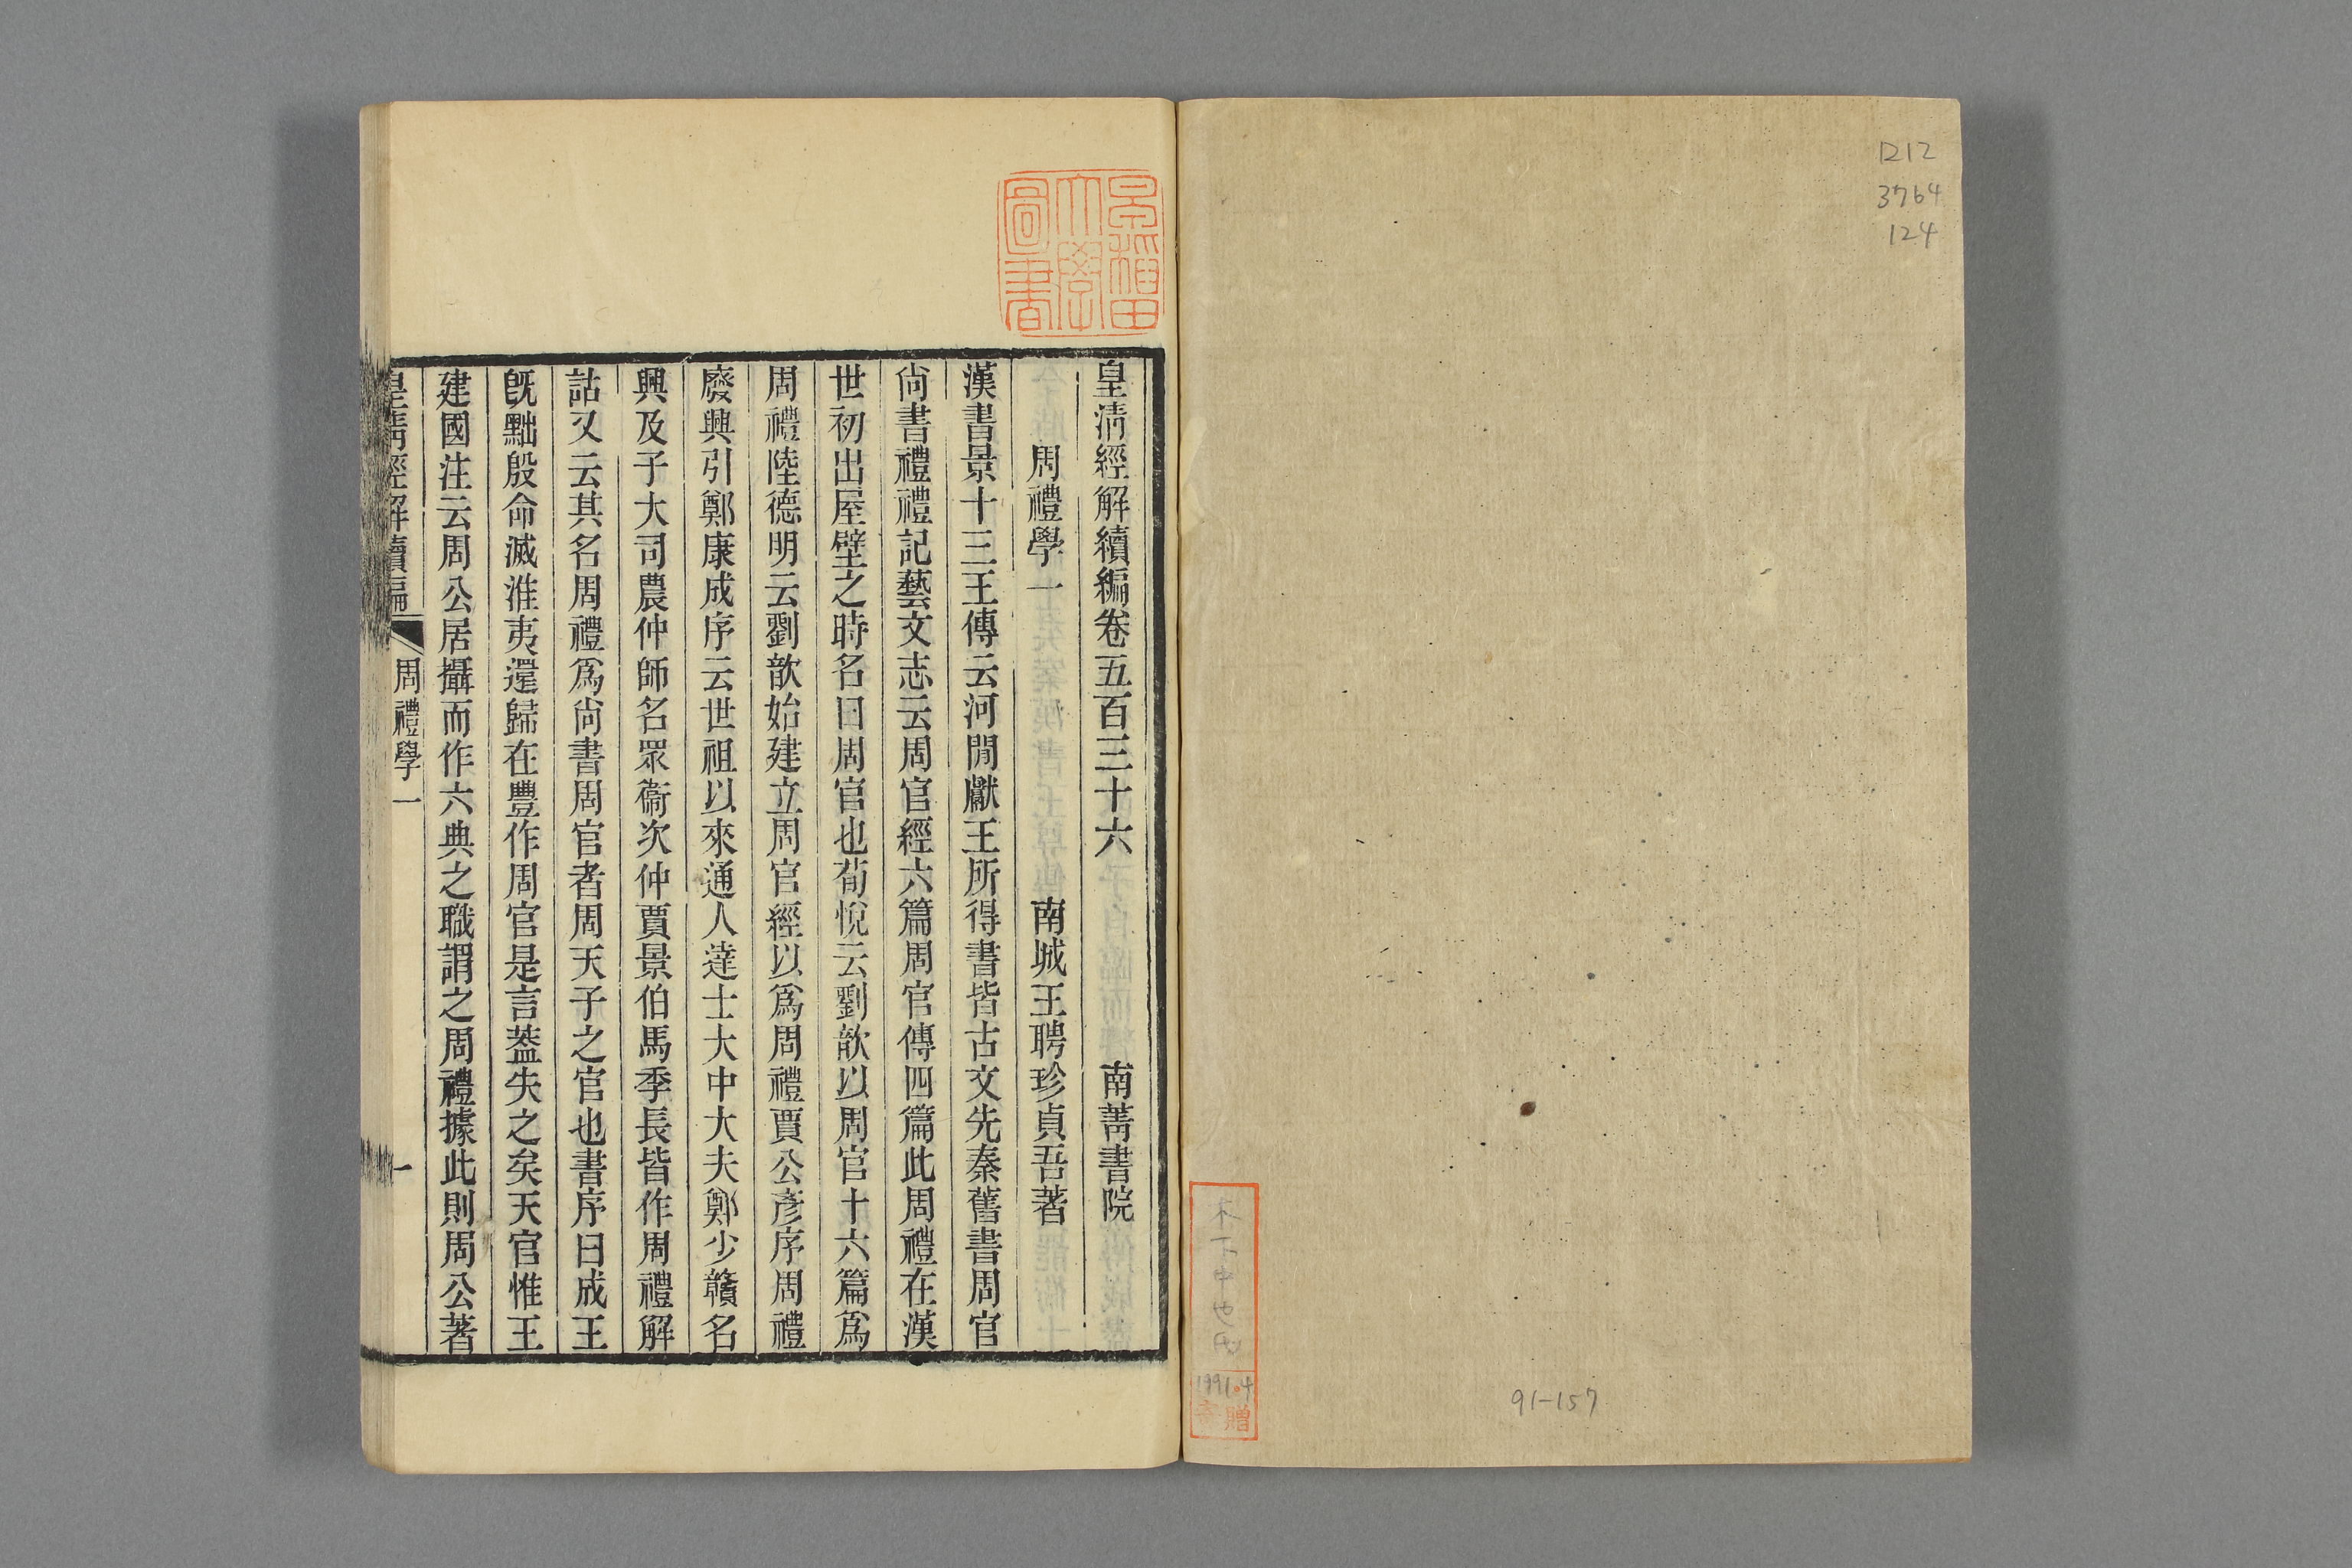 D212
3764
124
91-157
1991.4
寄贈
早稲田
大學
圖書
皇清經解續編卷五百三十六 南菁書院
周禮學一 南城王聘珍貞吾著
漢書景十三王傳云河閒獻王所得書皆古文先秦舊書周官
尙書禮禮記藝文志云周官經六篇周官傳四篇此周禮在漢
世初出屋壁之時名曰周官也荀悅云劉歆以周官十六篇爲
周禮陸德明云劉歆始建立周官經以爲周禮賈公彥序周禮
廢興引鄭康成序云世祖以來通人達士大中大夫鄭少贛名
興及子大司農仲師名眾衞次仲賈景伯馬季長皆作周禮解
詁又云其名周禮爲尙書周官者周天子之官也書序曰成王
旣黜殷命滅淮夷還歸在豐作周官是言葢失之矣天官惟王
建國注云周公居攝而作六典之職謂之周禮據此則周公著
皇淸經解續編 周禮學一 一